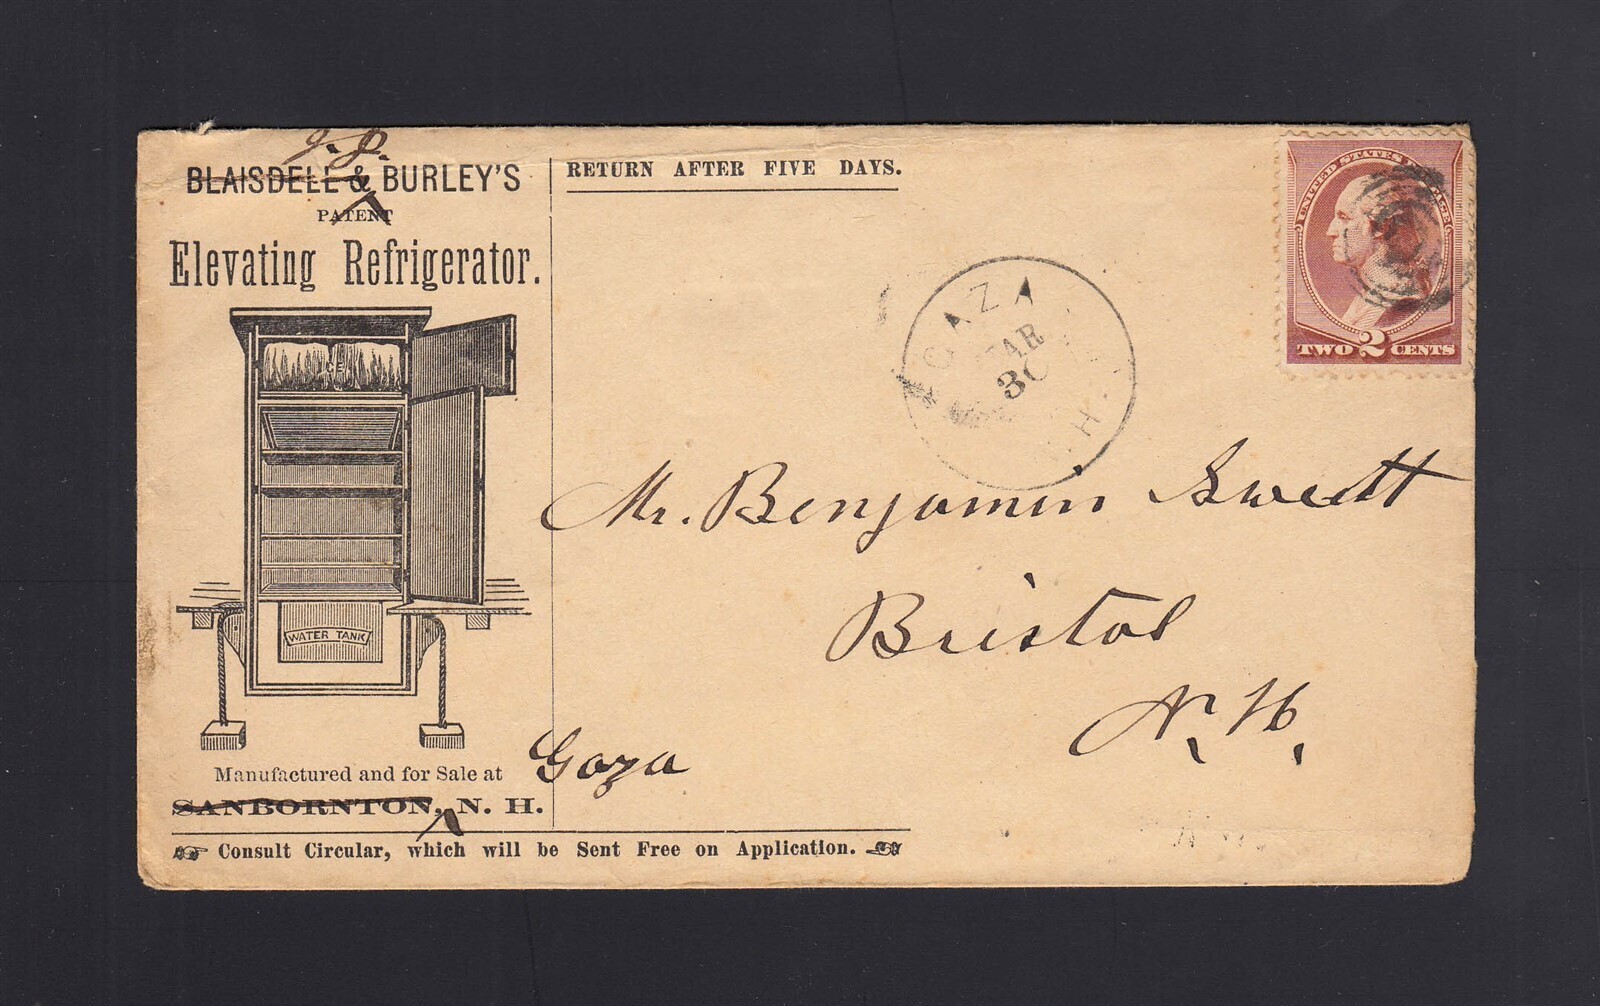 J. P.
BLAISDELL & BURLEY'S
PATENT
Elevating Refrigerator.
ICE
WATER TANK
Manufactured and for Sale at Goza
SANBORNTON, N. H.
Consult Circular, which will be Sent Free on Application.
RETURN AFTER FIVE DAYS.
GAZA
MAR
30
N. H.
UNITED STATES POSTAGE
TWO 2 CENTS
Mr. Benjamin Swett
Bristol
N. H.